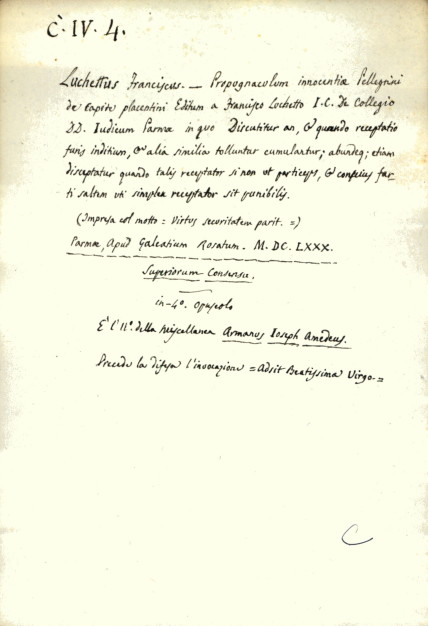 C. IV. 4.
Luchettus Franciscus. — Propugnaculum innocentiæ Pellegrini
de Capite placentini Editum a Francisco Luchetto I. C. De Collegio
DD. Iudicum Parmæ in quo Discutitur an, & quando receptatio
furis inditium, & alia similia tollantur cumulantur; abundeq; etiam
disceptatur quando talis receptator si non ut particeps, & conscius fur-
ti saltem uti simplex receptator sit punibilis.
(Impresa col motto = Virtus securitatem parit. =)
Parmæ, Apud Galeatium Rosatum. M. DC. LXXX.
Superiorum Consensu.
in-4º. Opuscolo
È l'11º. della Miscellanea Armanus Ioseph Amedeus.
Precede la difesa l'invocazione = Adsit Beatissima Virgo =
C